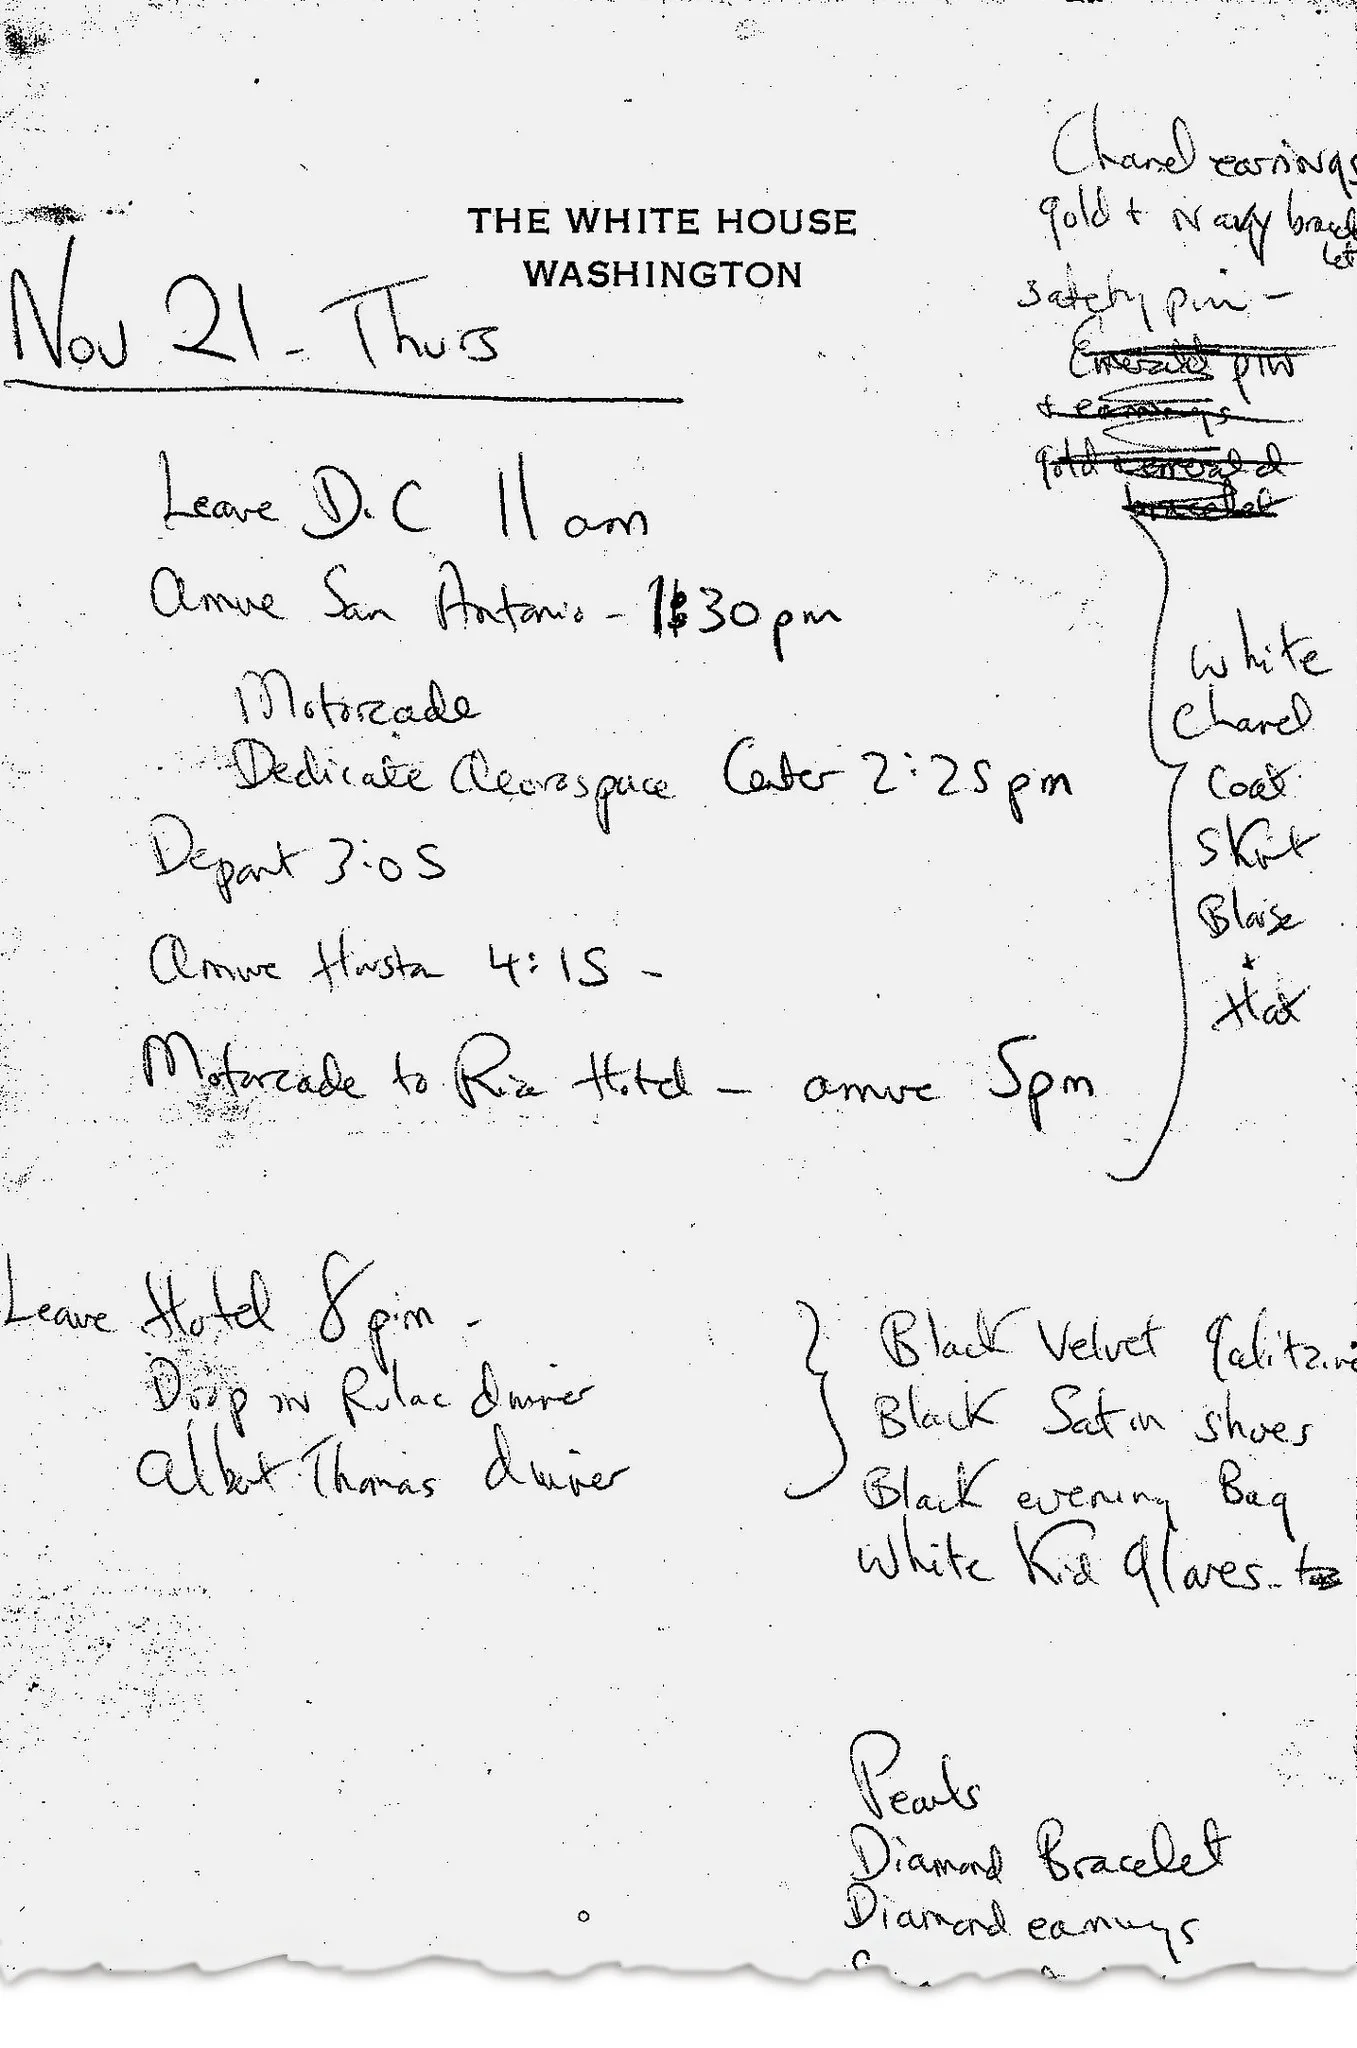 THE WHITE HOUSE
WASHINGTON
Chanel earrings
gold + Navy brace
let
safety pin -
Emerald pin
+ earrings
gold emerald
bracelet
Nov 21 - Thurs
Leave D.C 11 am
Arrive San Antonio - 1:30 pm
Motorcade
Dedicate Aeorospace Center 2:25 pm
Depart 3:05
Arrive Houston 4:15 -
Motorcade to Rice Hotel - arrive 5pm
White
Chanel
Coat
Skirt
Blouse
+
Hat
Leave Hotel 8 pm -
Drop in dinner
Albert Thomas dinner
Black Velvet
Black Satin shoes
Black evening Bag
White Kid gloves -
Pearls
Diamond Bracelet
Diamond earrings